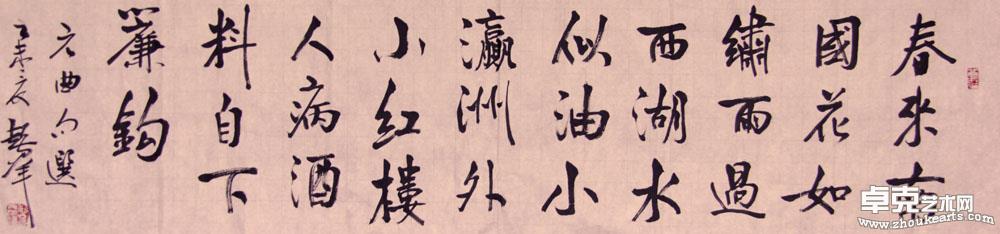 春來南
國花如
繡雨過
西湖水
似油小
瀛洲外
小红樓
人病酒
料自下
簾鈎
元曲句選
乙未
卓克艺术网
www.zhoukearts.com